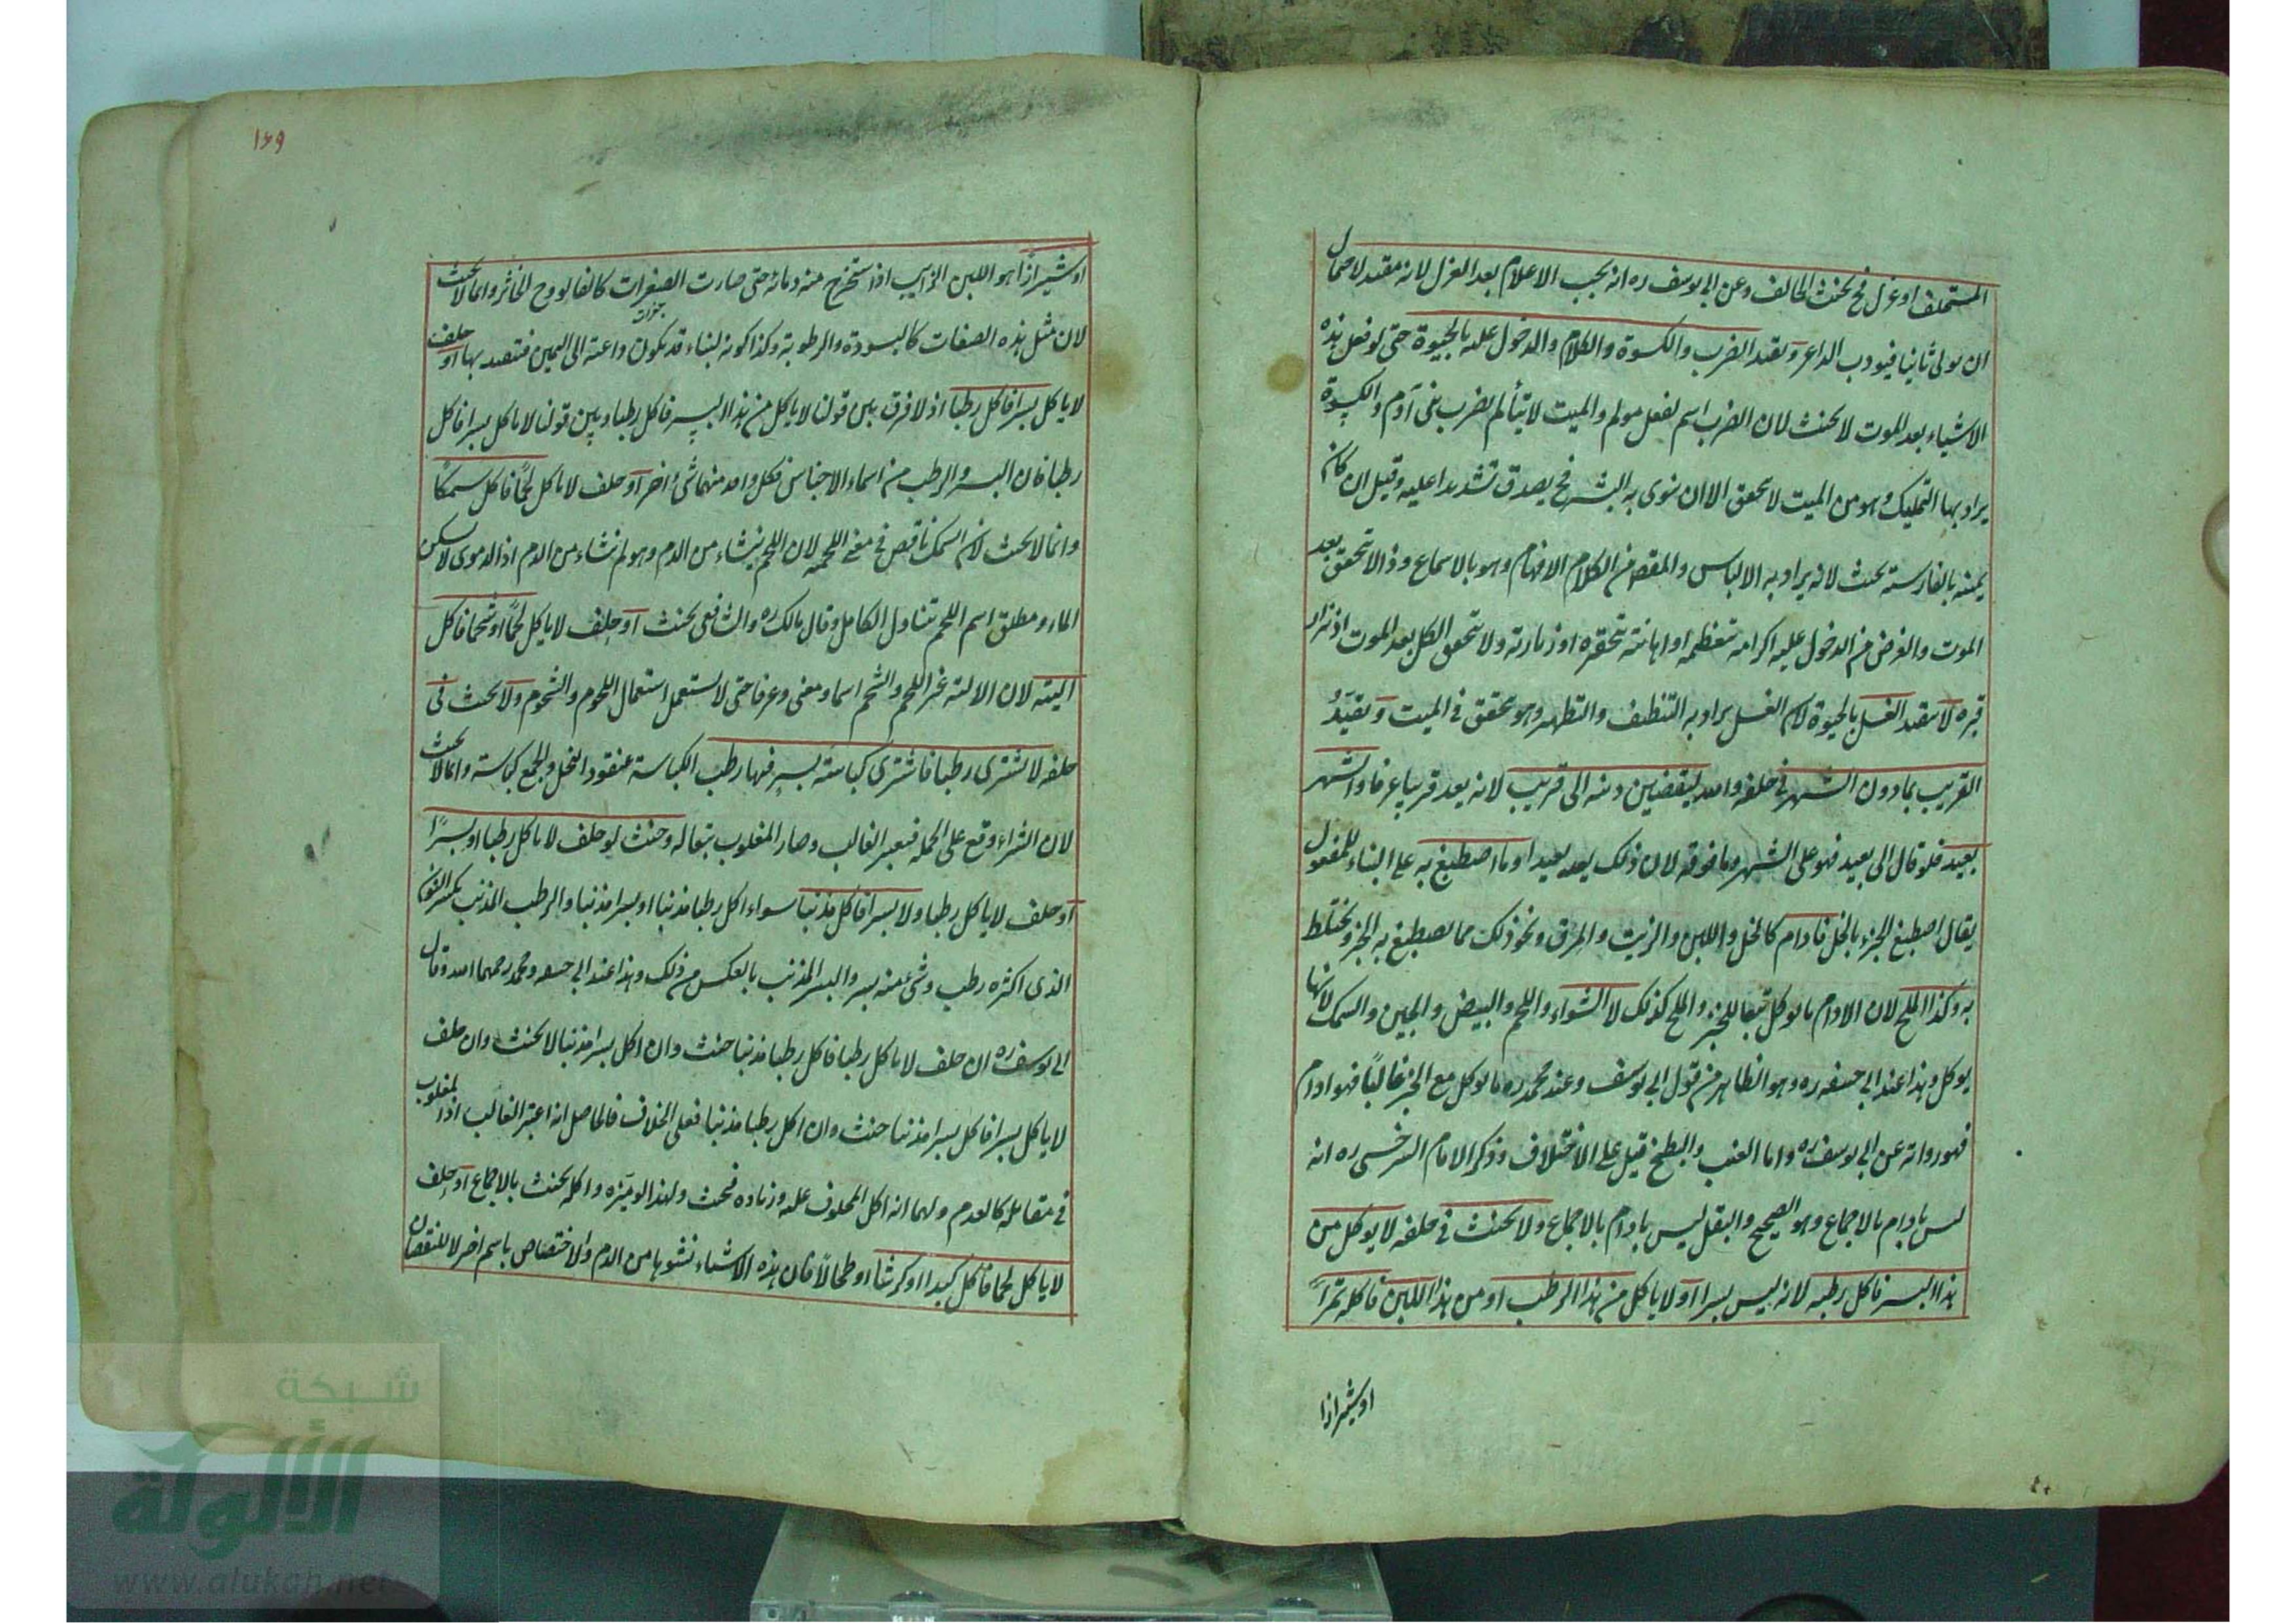 المستحلف او عزل فح يحنث الحالف وعن ابى يوسف ره انه يجب الاعلام بعد العزل لانه مقيد لاحتمال
ان يولى ثانيا فيودب الداعر ويقيد الضرب والكسوة والكلام والدخول عليه بالحيوة حتى لو فعل هذه
الاشياء بعد الموت لا يحنث لان الضرب اسم لفعل مولم والميت لا يتألم بضرب بنى آدم والكسوة
يراد بها التمليك وهو من الميت لا يتحقق الا ان نوى به الستر فح يصدق تشديدا عليه وقيل ان كان
يمينه بالفارسية يحنث لانه يراد به الالباس والمقصـ من الكلام الافهام وهو بالاسماع وذا لا يتحقق بعد
الموت والغرض من الدخول عليه اكرامه بتعظيمه او اهانته بتحقيره او زيارته ولا يتحقق الكل بعد الموت اذ تزار
قبره لا يقيد الغسل بالحيوة لان الغسل يراد به التنظيف والتطهير وهو يتحقق فى الميت ويقيد
القريب بمادون الشهر فى حلفه والله ليقضين دينه الى قريب لانه يعد قريبا عرفا والشهر
بعيد فلو قال الى بعيد فهو على الشهر وما فوقه لان ذلك يعد بعيدا وما اصطبغ به على البناء للمفعول
يقال اصطبغ الخبز بالخل فادام كالخل واللبن والزيت والمرق ونحو ذلك مما يصطبغ به الخبز ويختلط
به وكذا الملح لان الادام ما يوكل تبعا للخبز والملح كذلك لا الشواء واللحم والبيض والجبن والسمك لانها
يوكل وهذا عند ابى حنيفه ره وهو الظاهر من قول ابى يوسف وعند محمد ره ما يوكل مع الخبز غالبا فهو ادام
فهو رواية عن ابى يوسف ره واما العنب والبطيخ قيل على الاختلاف وذكر الامام السرخسى ره انه
ليس بادام بالاجماع وهو الصحيح والبقل ليس بادام بالاجماع ولا يحنث فى حلفه لا يوكل من
هذا البسر فاكل رطبه لانه ليس بسرا او لا ياكل من هذا الرطب او من هذا اللبن فاكله تمرا
او شيرازا
١٦٩
او شيرازا هو اللبن الرايب اذا استخرج منه ماؤه حتى صارت كالفالوذج الخاثر وانما لا يحنث
لان مثل هذه الصفات كالبسورة والرطوبة وكذا كونه لبنا قد يكون داعية الى اليمين فتقيد بها او حلف
لا ياكل بسرا فاكل رطبا اذ لا فرق بين قولنا لا ياكل من هذا البسر فاكل رطبا وبين قولنا لا ياكل بسرا فاكل
رطبا فان البسر والرطب من اسماء الاجناس فكل واحد منهما شئ اخر او حلف لا ياكل لحما فاكل سمكا
وانما لا يحنث لان السمك ناقص فى معنى اللحمية لان اللحم ينشاء من الدم وهو لم ينشاء من الدم اذ الدموى لا يسكن
الماء ومطلق اسم اللحم يتناول الكامل وقال مالك ره والشافعى يحنث او حلف لا ياكل لحما او شحما فاكل
الية لان الالية غير اللحم والشحم اسما ومعنى وعرفا حتى لا يستعمل استعمال اللحوم والشحوم ولا يحنث فى
حلفه لا يشترى رطبا فاشترى كباسة بسر فيها رطب الكباسة عنقود النخل والجمع كبايس وانما لا يحنث
لان الشراء وقع على الجملة فيعتبر الغالب وصار المغلوب تبعا له وحنث لو حلف لا ياكل رطبا او بسرا
او حلف لا ياكل رطبا ولا بسرا فاكل مذنبا سواء اكل رطبا مذنبا او بسرا مذنبا والرطب المذنب بكسر النون
الذى اكثره رطب وشئ منه بسر والبسر المذنب بالعكس من ذلك وهذا عند ابى حنيفه ومحمد رحمهما الله وقال
ابى يوسف ره ان حلف لا ياكل رطبا فاكل رطبا مذنبا حنث وان اكل بسرا مذنبا لا يحنث وان حلف
لا ياكل بسرا فاكل بسرا مذنبا حنث وان اكل رطبا مذنبا فعلى الخلاف فالحاصل انه اعتبر الغالب اذ المغلوب
فى مقابله كالعدم ولهما انه اكل المحلوف عليه وزياده فيحنث ولهذا لو ميزه واكله يحنث بالاجماع او حلف
لا ياكل لحما فاكل كبدا او كرشا او طحالا فان هذه الاشياء نشوها من الدم والاختصاص باسم اخر لا للنقصان
شبكة
الألوكة
www.alukah.net